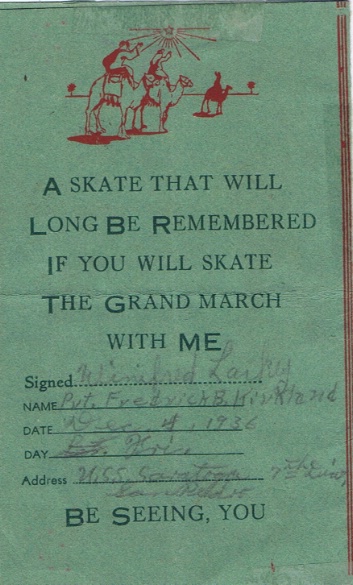 A SKATE THAT WILL
LONG BE REMEMBERED
IF YOU WILL SKATE
THE GRAND MARCH
WITH ME
Signed Winifred
NAME Pvt. Fredrick B. Kirkland
DATE Dec. 4, 1936
DAY Fri.
Address U.S.S. Saratoga 7th Div,
San Pedro
BE SEEING, YOU